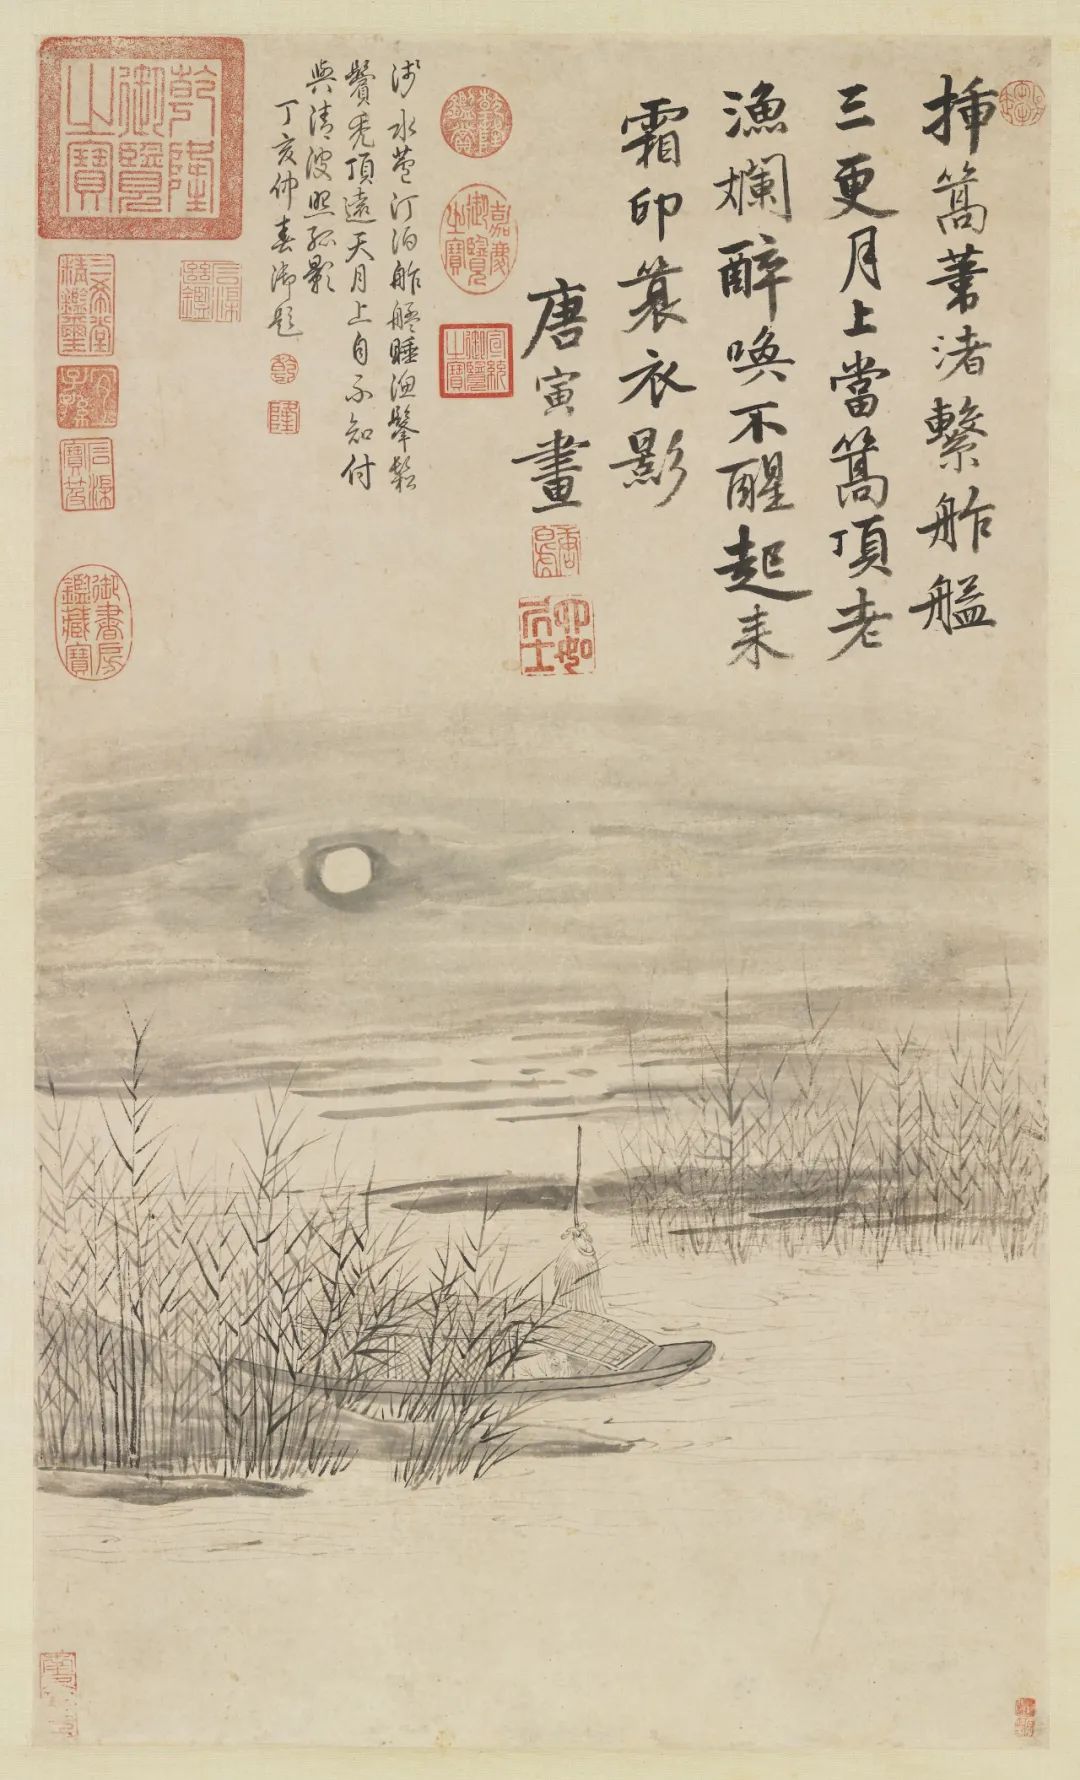 插篙葦渚繫舴艋
三更月上當篙頂老
漁爛醉喚不醒起来
霜印簑衣影
唐寅畫
唐寅
六如居士
乾隆鑑賞
嘉慶御覽之寶
宣統御覽之寶
淺水葦汀泊舴艋睡漁鬅鬆
鬢禿頂遠天月上自不知付
與清波照孤影
丁亥仲春御題
乾
隆
乾隆御覽之寶
石渠繼鑑
三希堂精鑑璽
宜子孫
石渠寶笈
御書房鑑藏寶